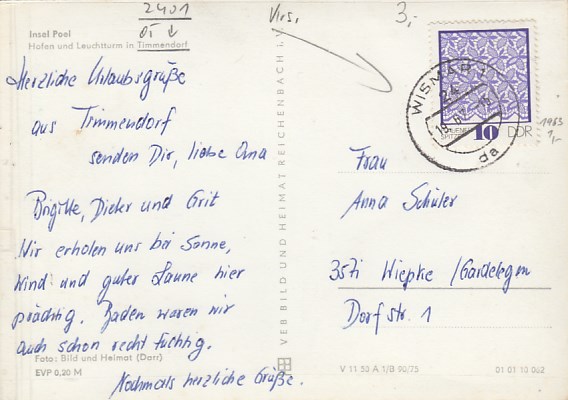 2401
OT ↓
Vrs.
3,-
Insel Poel
Hafen und Leuchtturm in Timmendorf
Herzliche Urlaubsgrüße
aus Timmendorf
senden Dir, liebe Oma
Brigitte, Dieter und Grit
Wir erholen uns bei Sonne,
Wind und guter Laune hier
prächtig. Baden waren wir
auch schon recht tüchtig.
Nochmals herzliche Grüße.
Foto: Bild und Heimat (Darr)
EVP 0,20 M
VEB BILD UND HEIMAT REICHENBACH i. V.
WISMAR 1
24
da
10 DDR
1963
1,-
Frau
Anna Schüler
3571 Wiepke /Gardelegen
Dorfstr. 1
V 11 50 A 1/B 90/75
01 01 19 062